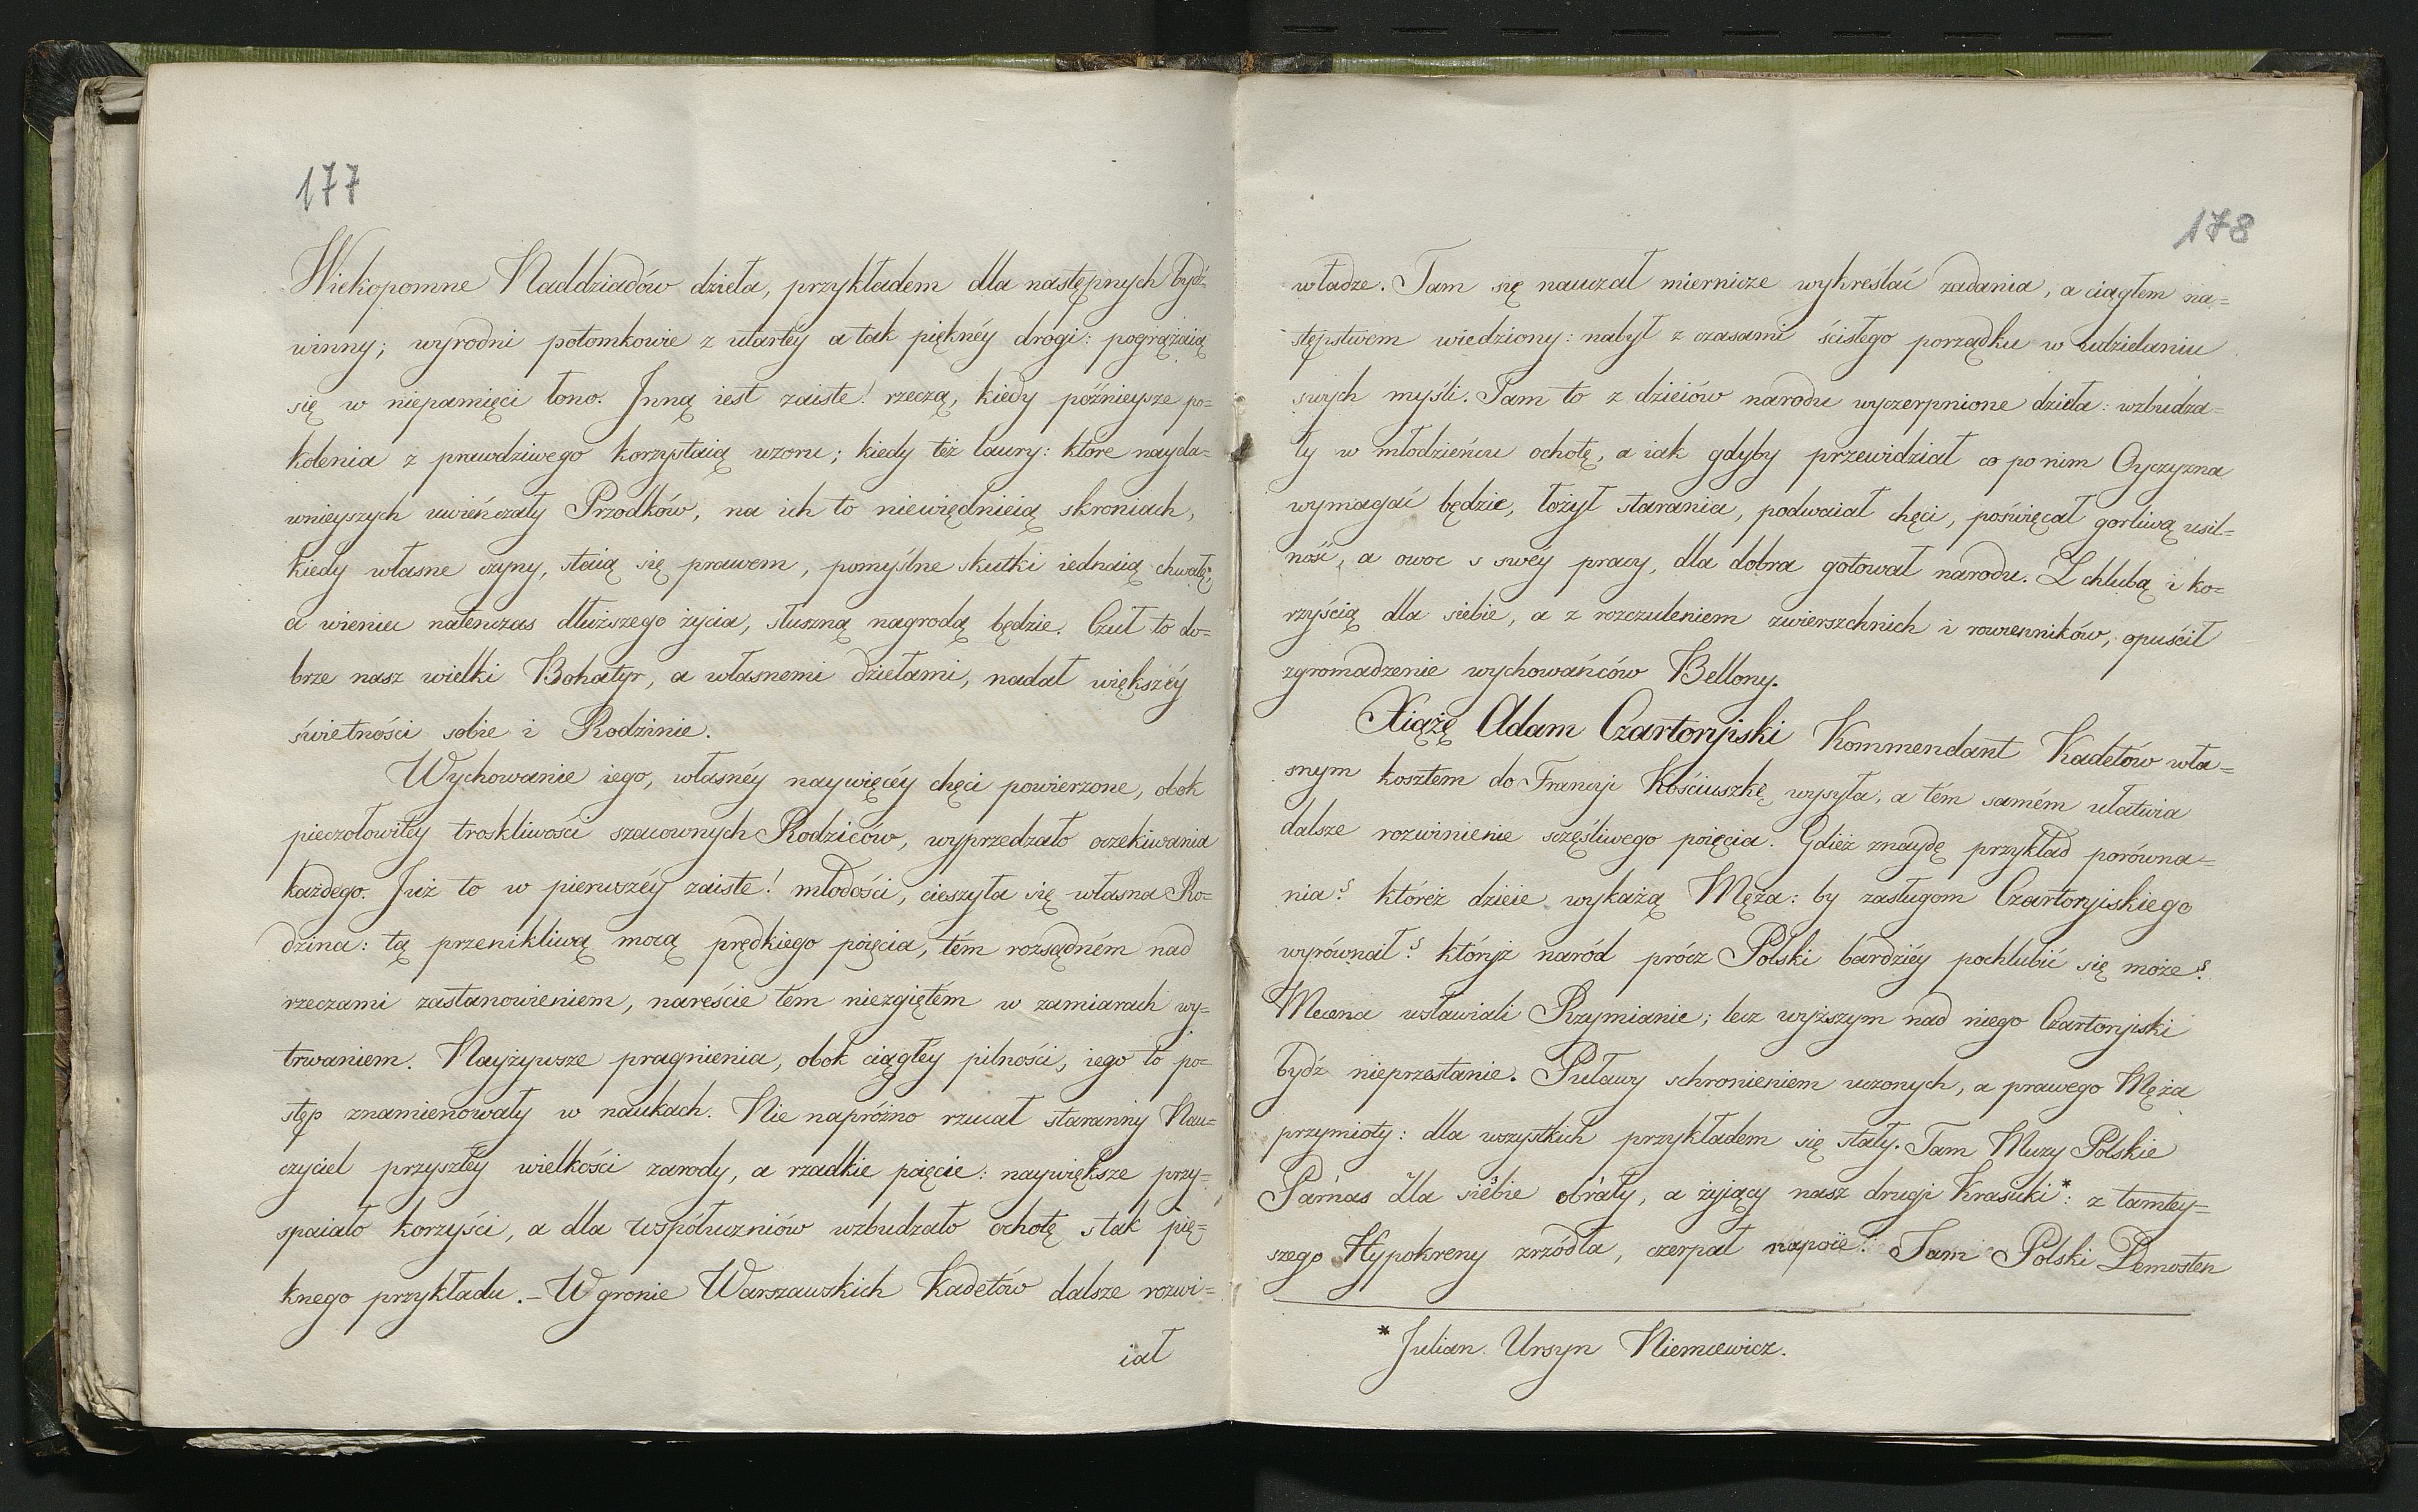 177
Wiekopomne Naddziadów dzieła, przykładem dla następnych bydź
winny; wyrodni potomkowie z utartéy a tak piéknéy drogi: pogrążaią
się w niepamięci łono. Inną iest zaiste! rzeczą, kiedy późnieysze po=
kolenia z prawdziwego korzystaią wzoru; kiedy też laury: które nayda=
wnieyszych uwieńczały Przodków, na ich to niewiędnieią skroniach,
kiedy własne czyny, staią się prawem, pomyślne skutki iednaią chwałę,
a wieniec natenczas dłuższego życia, słuszną nagrodą będzie. Czuł to do=
brze nasz wielki Bohatyr, a własnemi dziełami, nadał większéy
świetności sobie i Rodzinie.
Wychowanie iego, własnéy naywięcéy chęci powierzone, obok
pieczołowitéy troskliwości szacownych Rodziców, wyprzedzało oczekiwania
każdego. Już to w pierwszéy zaiste! młodości, cieszyła się własna Ro=
dzina: tą przenikliwą mocą prędkiego poięcia, tém rozsądném nad
rzeczami zastanowieniem, nareście tem niezgiętém w zamiarach wy=
trwaniem. Nayżywsze pragnienia, obok ciągłey pilności, iego to po=
stęp znamienowały w naukach. Nie napróżno rzucał staranny Nau=
czyciel przyszłéy wielkości zarody, a rzadkie poięcie: naywiększe przy=
spaiało korzyści, a dla współuczniów wzbudzało ochotę s tak pię=
knego przykładu. – W gronie Warszawskich Kadetów dalsze rozwi=
iał
178
władze. Tam się nauczał miernicze wykreślać zadania, a ciągłem na=
stępstwem wiedziony: nabył z czasami ścisłego porządku w udzielaniu
swych myśli. Tam to z dzieiów narodu wyczerpnione dzieła: wzbudza=
ły w młodzieńcu ochotę, a iak gdyby przewidział co po nim Oyczyzna
wymagać będzie, łożył starania, podwaiał chęci, poświęcał gorliwą usil=
ność, a owoc s swéy pracy, dla dobra gotował narodu. Z chlubą i ko=
rzyścią dla siebie, a z rozczuleniem zwierszchnich i rowienników, opuścił
zgromadzenie wychowańców Bellony.
Xiążę Adam Czartoryiski Kommendant Kadetów wła=
snym kosztem do Francyi Kościuszkę wysyła, a tém samém ułatwia
dalsze rozwinienie sczęśliwego poięcia. Gdież znaydę przykład porówna=
nia? któreż dzieie wykażą Męża: by zasługom Czartoryiskiego
wyrównał? któryż naród prócz Polski bardziéy pochlubić się może?
Mecena wsławiali Rzymianie; lecz wyższym nad niego Czartoryiski
bydź nieprzestanie. Puławy schronieniem uczonych, a prawego Męża
przymioty: dla wszystkich przykładem się stały. Tam Muzy Polskie
Parnas dla siebie obrały, a żyiący nasz drugi Krasicki*: z tamtéy=
szego Hypokreny zrzódła, czerpał napoie! Tam Polski Demosten
* Julian Ursyn Niemcewicz.